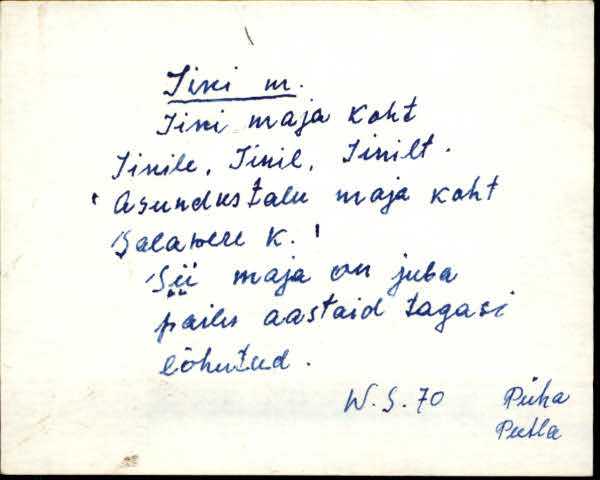 Iiri m.
Iiri maja koht
Iirile, Iiril, Iirilt.
'Asundustalu maja koht
Salavere k.'
Sii maja on juba
pailu aastaid tagasi
lõhutud.
W.S.70 Püha
Putla